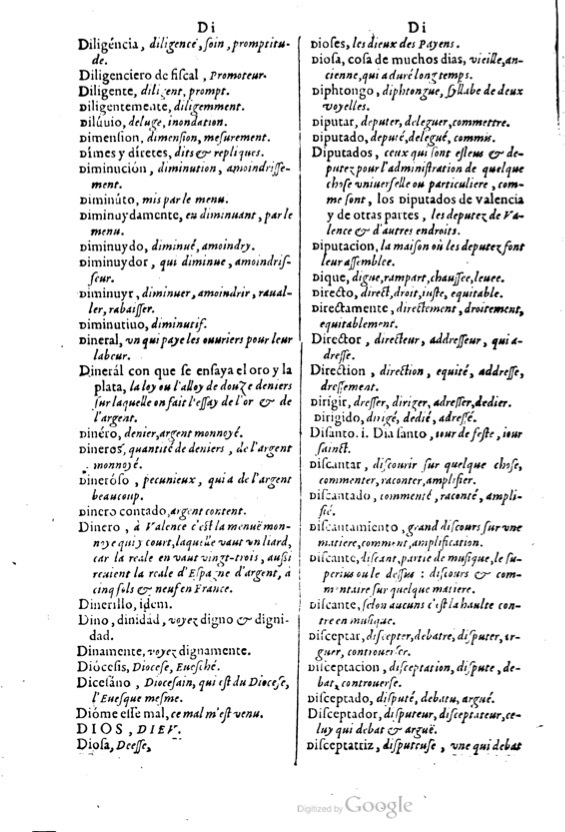 Di
Diligéncia, diligence, soin, promptitu-
de.
Diligenciero de fiscal, Promoteur.
Diligente, diligent, prompt.
Diligentemente, diligemment.
Dilúuio, deluge, inondation.
Dimension, dimension, mesurement.
Dimes y diretes, dits & repliques.
Diminución, diminution, amoindrisse-
ment.
Diminúto, mis par le menu.
Diminuydamente, en diminuant, par le
menu.
Diminuydo, diminué, amoindry.
Diminuydor, qui diminue, amoindris-
seur.
Diminuyr, diminuer, amoindrir, raual-
ler, rabaisser.
Diminutiuo, diminutif.
Dineral, vn qui paye les ouuriers pour leur
labeur.
Dinerál con que se ensaya el oro y la
plata, la loy ou l'alloy de douze deniers
sur laquelle on fait l'essay de l'or & de
l'argent.
Dinéro, denier, argent monnoyé.
Dineros, quantité de deniers, de l'argent
monnoyé.
Dineróso, pecunieux, qui a de l'argent
beaucoup.
Dinero contado, argent content.
Dinero, à Valence c'est la menuë mon-
noye qui y court, laquelle vaut vn liard,
car la reale en vaut vingt-trois, aussi
reuient la reale d'Espagne d'argent, à
cinq sols & neuf en France.
Dinerillo, idem.
Dino, dinidad, voyez digno & digni-
dad.
Dinamente, voyez dignamente.
Diócesis, Diocese, Euesché.
Dicesáno, Diocesain, qui est du Diocese,
l'Euesque mesme.
Dióme esse mal, ce mal m'est venu.
DIOS, DIEV.
Diosa, Deesse,
Di
Dioses, les dieux des Payens.
Diosa, cosa de muchos dias, vieille, an-
cienne, qui a duré long temps.
Diphtongo, diphtongue, syllabe de deux
voyelles.
Diputar, deputer, deleguer, commettre.
Diputado, deputé, delegué, commis.
Diputados, ceux qui sont esleus & de-
putez pour l'administration de quelque
chose vniuerselle ou particuliere, com-
me sont, los Diputados de Valencia
y de otras partes, les deputez de Va-
lence & d'autres endroits.
Diputacion, la maison où les deputez font
leur assemblee.
Dique, digue, rampart, chaussee, leuee.
Directo, direct, droit, iuste, equitable.
Directamente, directement, droitement,
equitablement.
Director, directeur, addresseur, qui a-
dresse.
Direction, direction, equité, addresse,
dressement.
Dirigir, dresser, diriger, adresser, dedier.
Dirigido, dirigé, dedié, adressé.
Disanto. i. Dia santo, iour de feste, iour
sainct.
Discantar, discourir sur quelque chose,
commenter, raconter, amplifier.
Discantado, commenté, raconté, ampli-
fié.
Discantamiento, grand discours sur vne
matiere, comment, amplification.
Discante, discant, partie de musique, le su-
perius ou le dessus : discours & com-
mentaire sur quelque matiere.
Discante, selon aucuns c'est la haulte con-
tre en musique.
Disceptar, discepter, debatre, disputer, ar-
guer, controuerser.
Disceptacion, disceptation, dispute, de-
bat, controuerse.
Disceptado, disputé, debatu, argué.
Disceptador, disputeur, disceptateur, ce-
luy qui debat & arguë.
Disceptatriz, disputeuse, vne qui debat
Digitized by Google